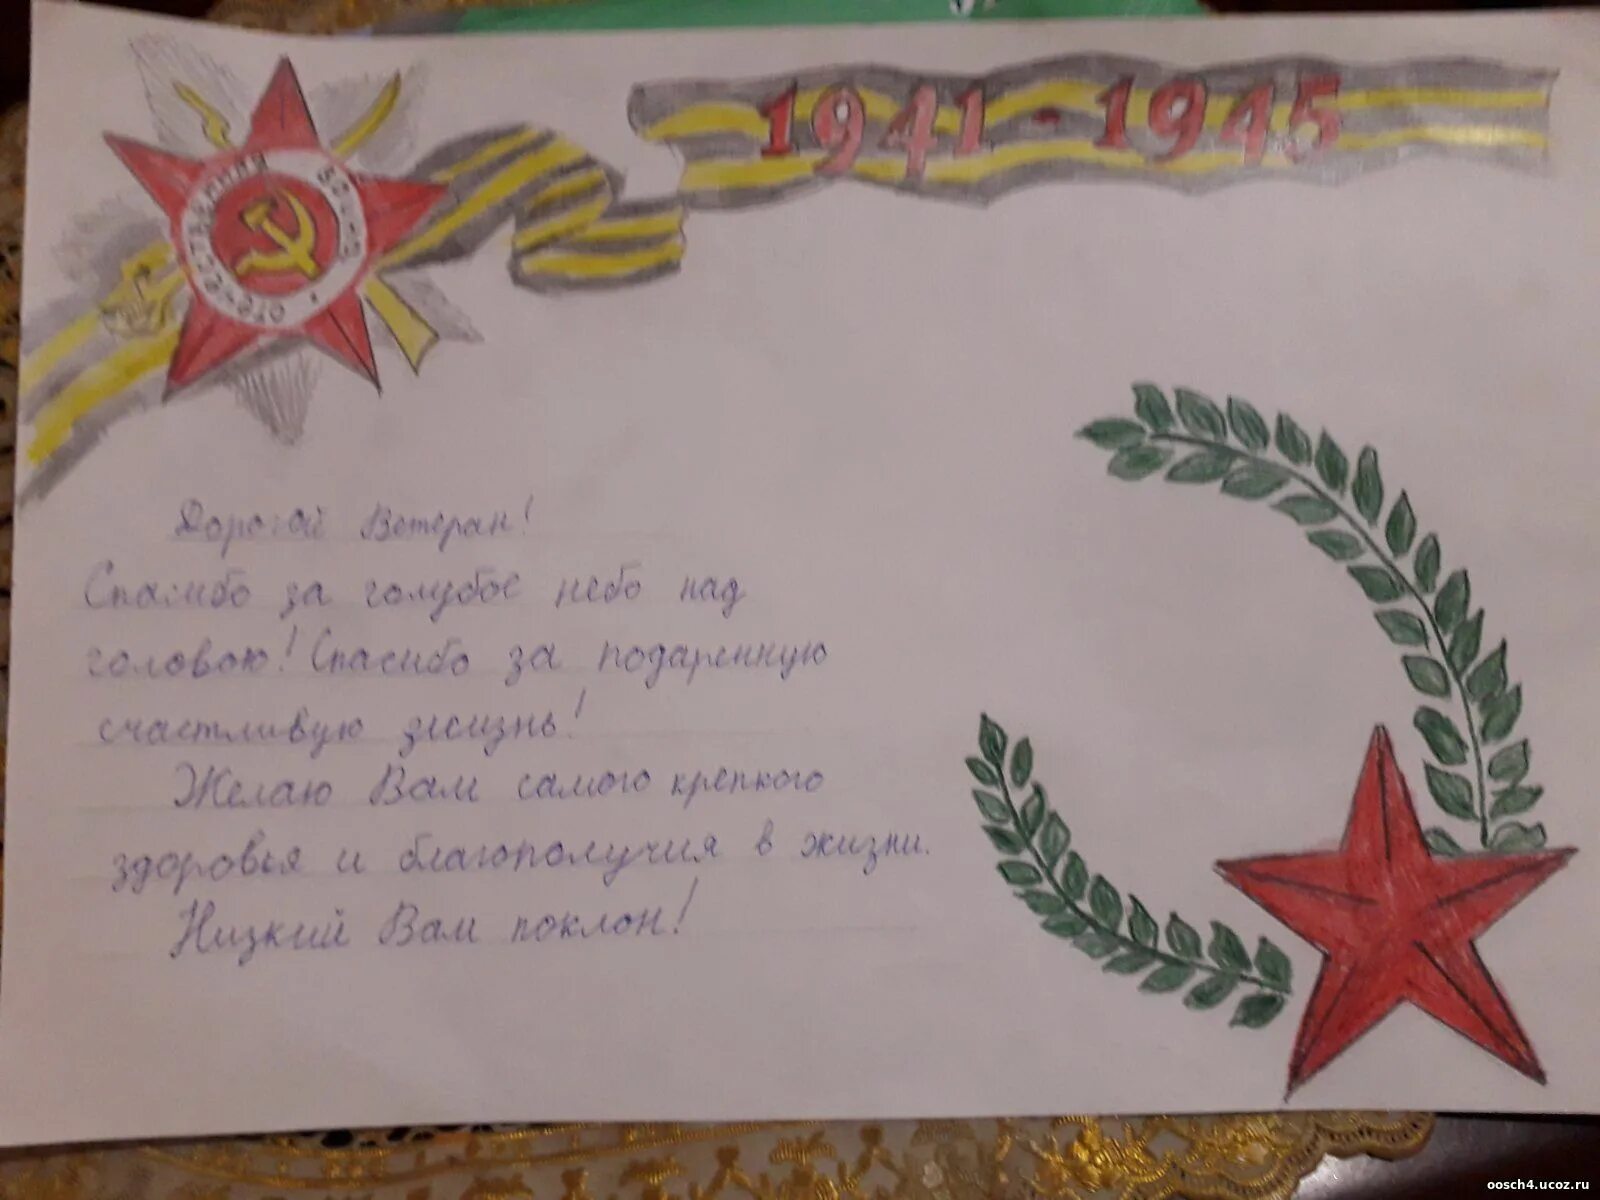 1941 - 1945
ОТЕЧЕСТВЕННАЯ ВОЙНА
Дорогой Ветеран!
Спасибо за голубое небо над
головою! Спасибо за подаренную
счастливую жизнь!
Желаю Вам самого крепкого
здоровья и благополучия в жизни.
Низкий Вам поклон!
oosch4.ucoz.ru